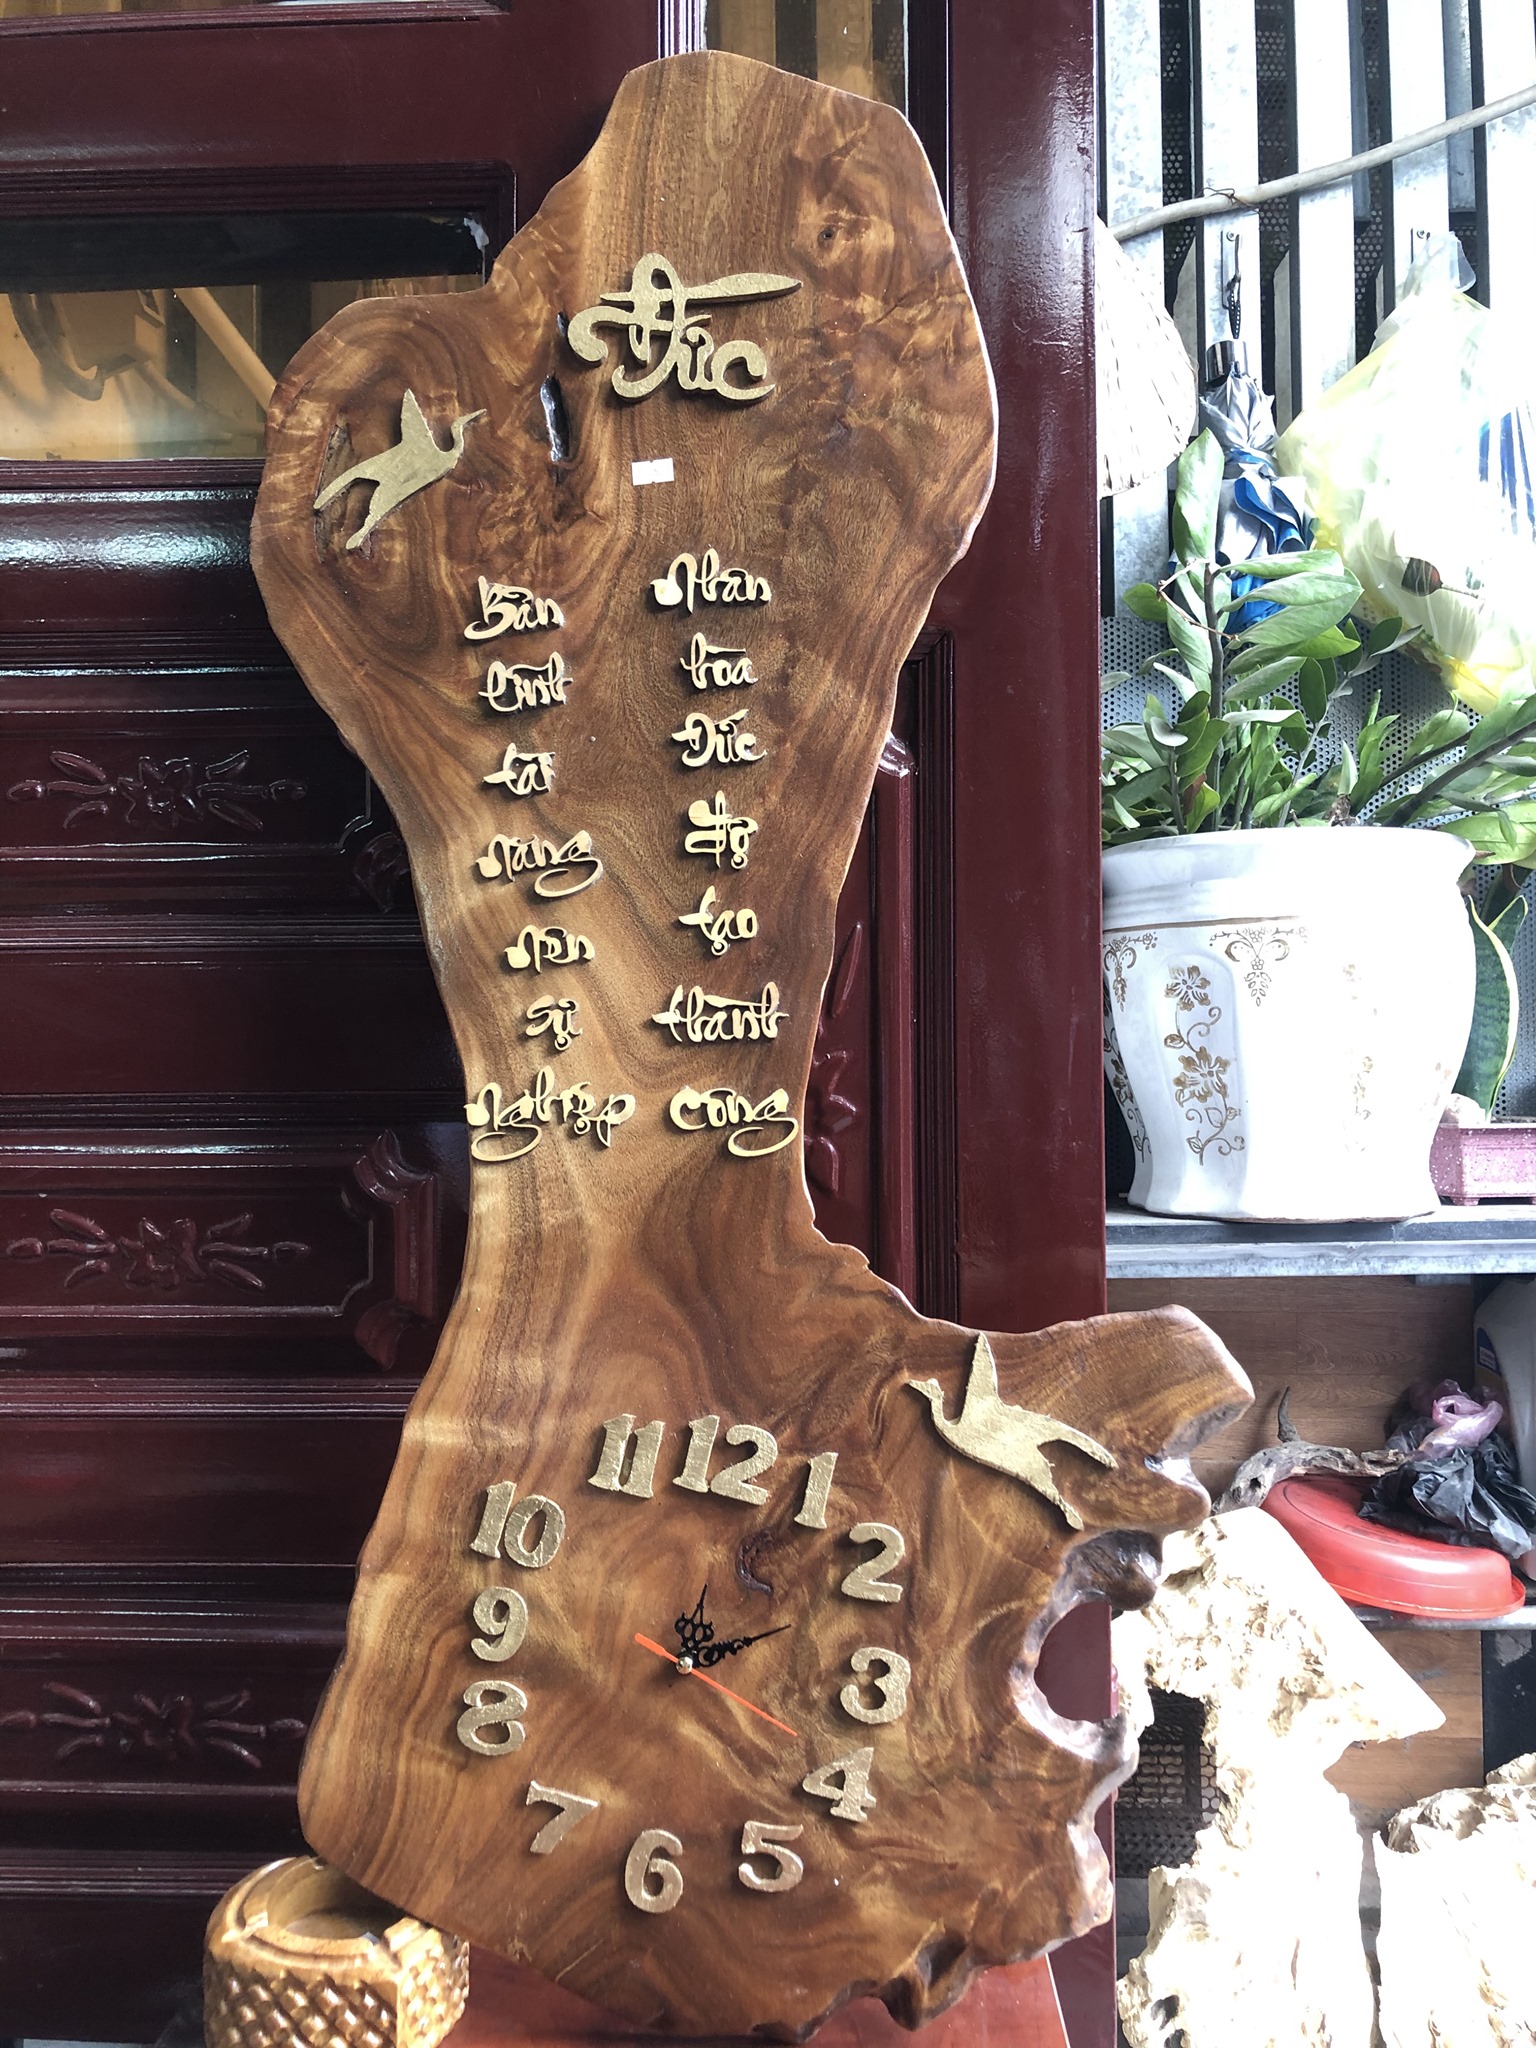 Đức
Bản
lĩnh
tài
năng
nên
sự
Nghiệp
Nhân
hòa
Đức
độ
tạo
thành
công
11
12
1
10
2
9
3
8
4
7
5
6